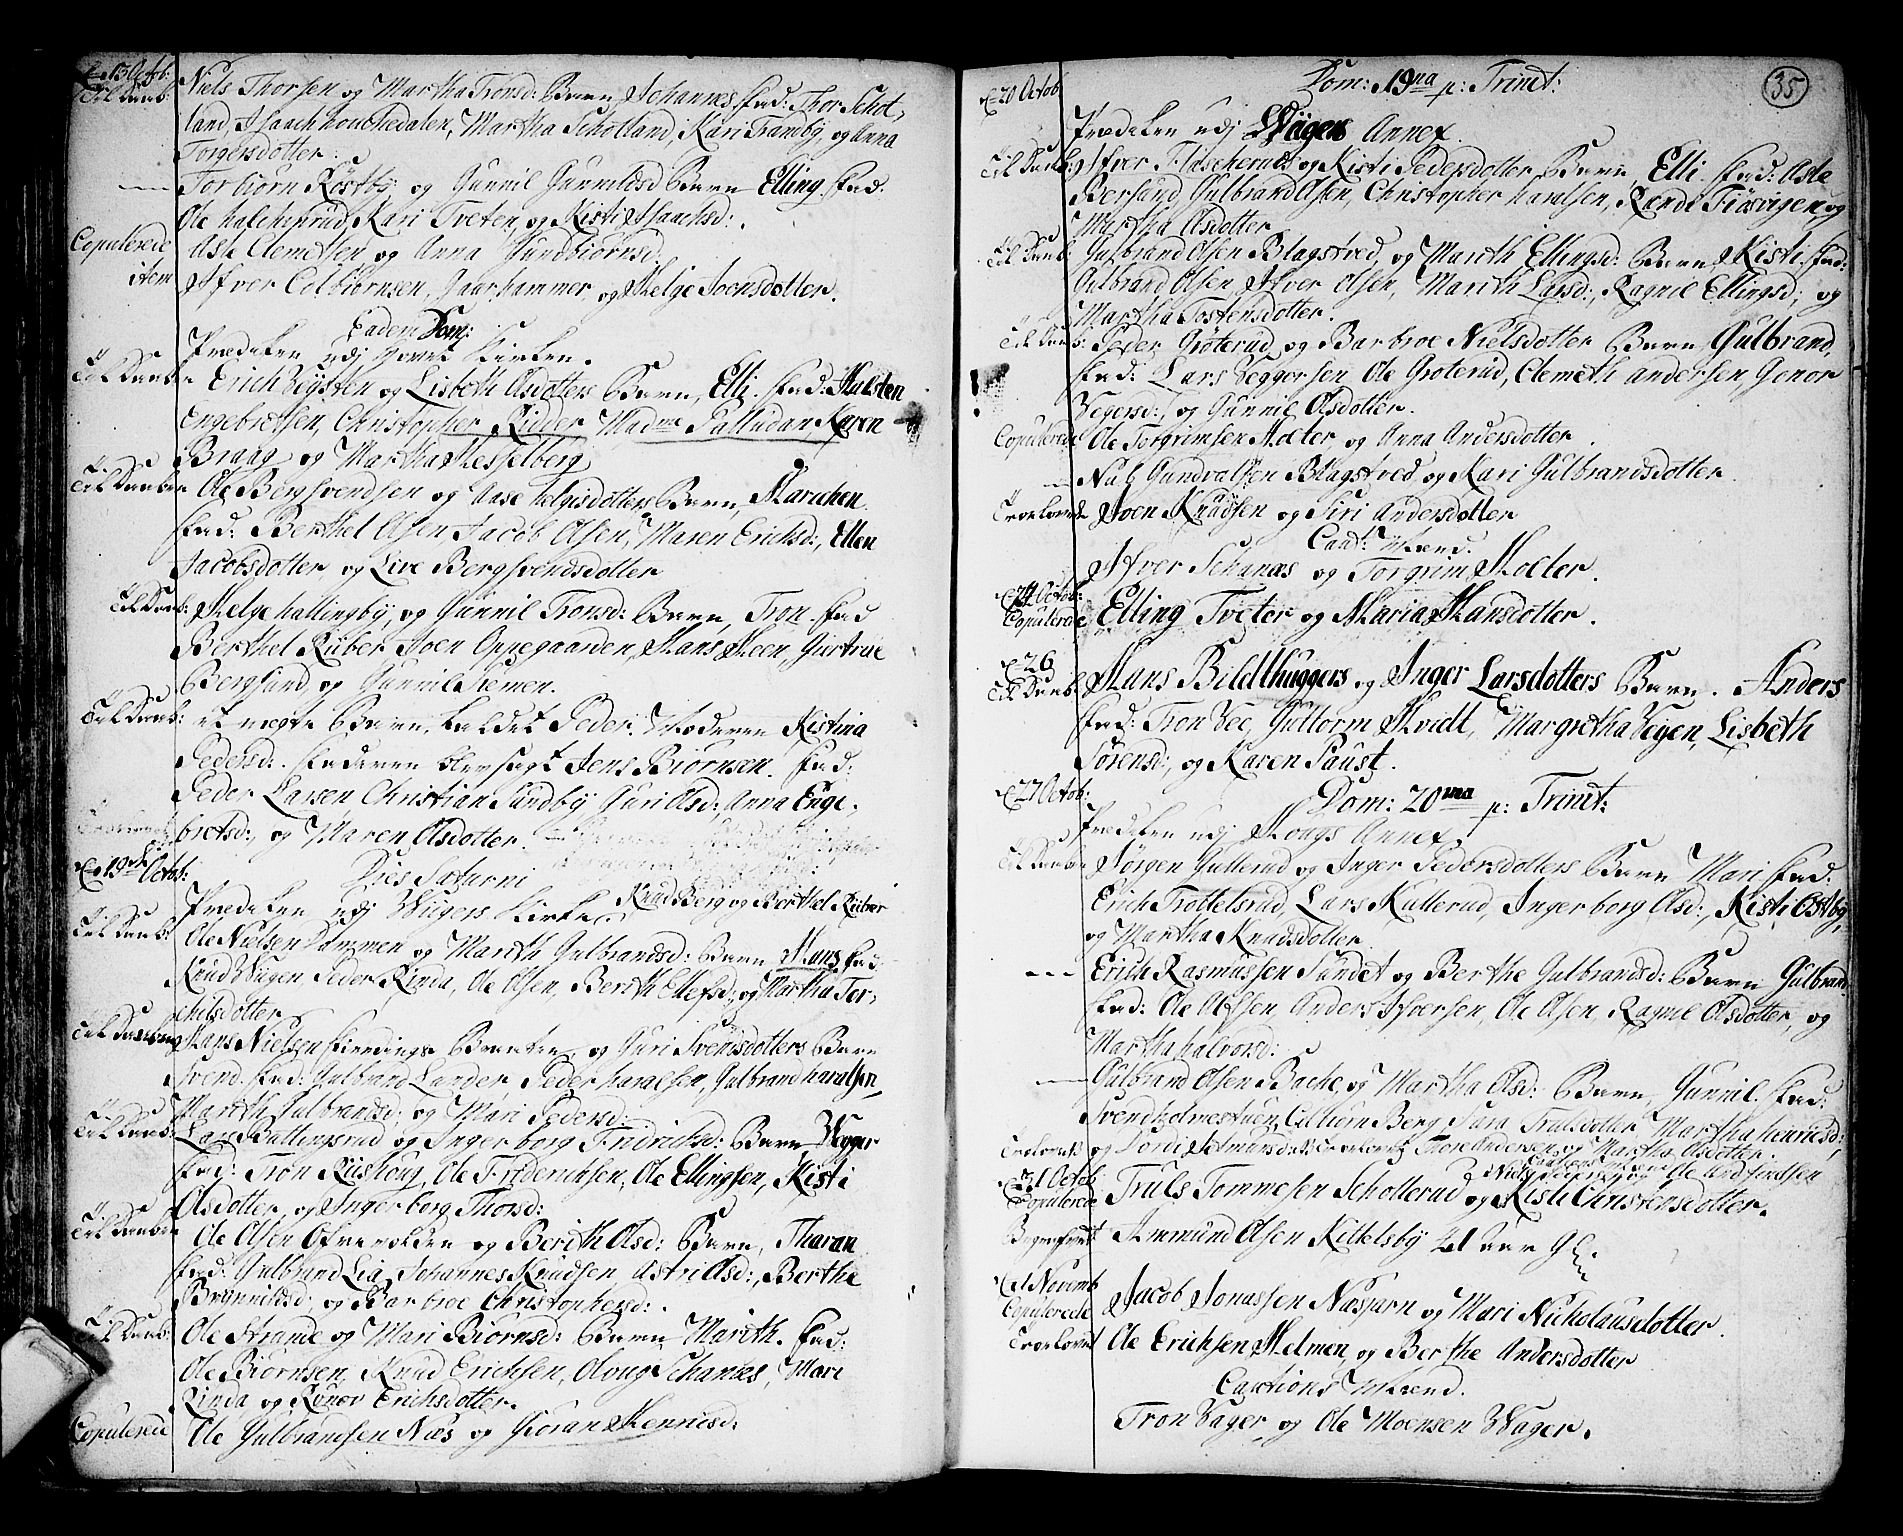 d. 13 Octob:
Til Daab: Niels Thorsen og Martha Tronsd: Barn Johannes fad: Thor Schot,
land, Isaach Martha Schotland, Kari Tranby, og Anna
Torgersdotter.
Torbiørn Røstby og Gunnil Gunnildsd Barn Elling. fad.
Ole Kari Tveten, og Kisti Isaachsd:.
Copulerede Ask Clemetsen og Anna Gundbiørnsd.
item Ifver Colbiørnsen, Jaarhammer og Helge Joensdotter.
Eadem Dom:
Prædiken udj Hoved Kirken.
Til Daab Erich Vejsten og Lisbeth Olsdotters Barn, Elli. fad: Halsten
Engebretsen, Christopher Ridder Madme Palludan, Karen
Braag og Martha Hesselberg
Til Daab Ole Bergsvendsen og Aase Helgisdotters Barn, Marichen
fad: Berthel Olsen, Jacob Olsen, Maren Erichsd:, Ellen
Jacobsdotter, og Live Bergsvendsdotter
Til Daab: Helge Hallingby, og Gunnil Tronsd: Barn, Tron. fad
Berthel Ruber Joen Oppegaarden, Hans Meen, Giertrue
Bergsund, og Gunnil Semen.
Til Daab: et uægte Barn, kaldet Peder. Moderen Kistina
Pedersd. faderen blev sagt Jens Biørnsen. fad:
Peder Larsen Christian Sandby Guri Olsd:, Anna Enge,
bretsd:, og Maren Olsdotter.
d. 19de Octob: Dies Saturni
Prædiken udj Viigers Kirke Knud Berg og Berthel Ruber
Til Daab: Ole Nielsen Dammen og Marith Gulbrandsd: Barn Hans. fad:
Knud Viigen, Peder Rinda, Ole Olsen, Berith Ellefsd:, og Martha Tor,
chilsdotter
Til Daab Hans Nielsen og Guri Svenisdotters Barn
Svend. fad: Gulbrand Lunder, Peder Haraldsen, Gulbrand Haraldsen,
Marith Gulbrandsd: og Mari Pedersd:
Til Daab: Lars Battingsrud og Ingerborg Fridrichsd: Barn, Vegger
fad: Tron Riishoug, Ole Friderichsen, Ole Ellingsen, Kisti
Olsdotter, og Ingerborg Thorsd:
Til Daab: Ole Olsen Ofrevolden og Berith Olsd: Barn, Tharan
fad: Gulbrand Lia, Johannes Knudsen Astri Olsd:, Berthe
Brunnildsd: og Barbroe Christophersd:.
Til Daab: Ole Strande og Mari Biørnsd: Barn Marith. fad:
Ole Biørnsen, Knud Erichsen, Oloug Schanæs, Mari
Rinda og Runov Erichsdotter.
Copulerede Ole Gulbrandsen Næs og Gioran Henrichsd:
35
d. 20 Octob Dom: 19na p: Trinit:
Prædiken udj Viigers Annex.
Til Daab: Ifver Flascherud og Kisti Pedersdotter Barn, Elli. fad: Aste
Bersund, Gulbrand Olsen, Christopher Haralsen, Rande Fiøsvigen og
Martha Olsdotter
Til Daab: Gulbrand Olsen Blagstved, og Marith Ellingsd: Barn, Kisti. fad:
Gulbrand Olsen, Ifver Olsen, Marith Larsd:, Ragnil Ellingsd: og
Martha Tostensdotter.
Til Daab: Peder Grøterud og Barbroe Nielsdotter Barn, Gulbrand,
fad: Lars Veggersen Ole Groterud, Clemeti Andersen Gonor
Vegersd: og Gunnil Olsdotter.
Copulerede Ole Torgrimsen Moeter og Anna Andersdotter.
Nub Gundvalsen Blagstved og Kari Gulbrandsdotter
Troelovede Joen Knudsen og Siri Andersdotter
Caut: Mænd.
Ifver Schanæs og Torgrim Moeter.
d. 24 Octob:
Copulerede Elling Tveter og Maria Hansdotter.
d. 26
Til Daab Hans Bildthuggers og Inger Larsdotters Barn. Anders
fad: Tron Vee, Guttorm Hvidt, Margretha Veigen, Lisbeth
Sørensd:, og Karen Paust.
d. 27 Octob: Dom: 20ma p: Trinit:
Prædiken udj Hougs Annex,
Til Daab Jørgen Gulterud og Inger Pedersdotters Barn Mari fad:
Erich Trottelsrud, Lars Kulterud, Ingerborg Olsd:, Kisti Ostby,
og Martha Knudsdotter
Erich Rasmussen Sundet og Berthe Gulbrandsd: Barn Gulbrand
fad: Ole Olsen, Anders Ifversen, Ole Olsen, Ragnil Olsdotter, og
Martha Halvorsd:
Gulbrand Olsen Bache, og Martha Olsd: Barn, Gunnil. fad:
Svend Holmestuen, Colbiørn Berg, Sara Trulsdotter Martha Henrichsd:
og Dordi Tore Andersen og Martha Olsdotter.
Cautions Mænd
Niels og Ole Andfindsen
d. 31 Octob
Copulerede Truls Tommesen Schollerud og Kisti Christensdotter.
Begrafvet Ammund Olsen Kittelsby
d. 1 Novemb
Copulerede Jacob Jonassen Næsparn og Mari Nicholausdotter.
Troelovet Ole Erichsen Helmen, og Berthe Andersdotter
Cautions Mænd.
Tron Vager, og Ole Moensen Vager.